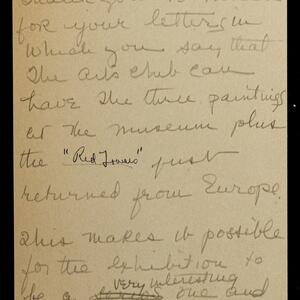 for your letter in
which you say that
the arts club can
have the three paintings
at the museum plus
the "Red Towers" just
returned from Europe.
This makes it possible
for the exhibition to
very interesting
be a one and